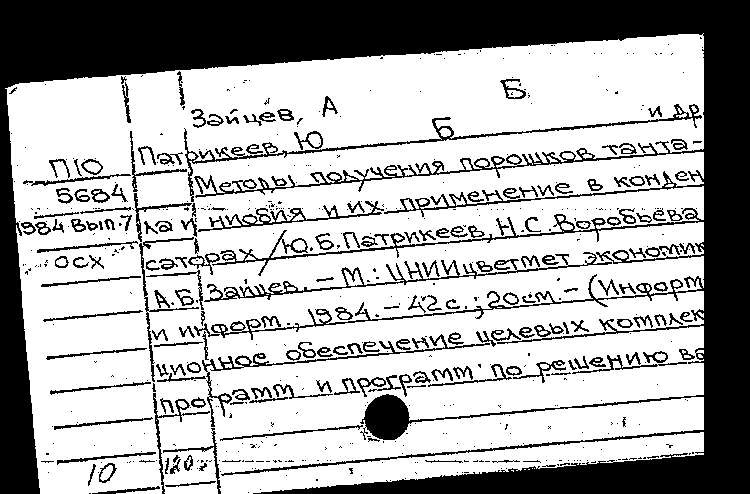 Б
Зайцев, А
Патрикеев, Ю Б и др
П10 Методы получения порошков танта-
5684 ла и ниобия и их применение в конден
1984 вып.7 саторах / Ю.Б. Патрикеев, Н.С. Воробьева
осх А.Б. Зайцев. – М.: ЦНИИцветмет экономик
и информ., 1984. – 42 с.; 20 см. – (Информ
ционное обеспечение целевых комплек
программ и программ по решению ва
10